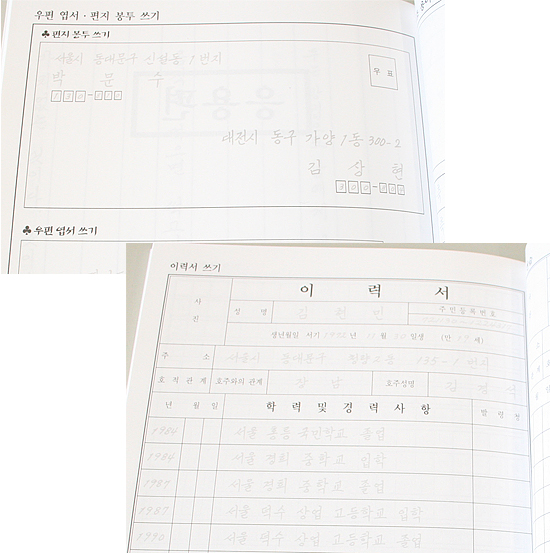 우편 엽서 · 편지 봉투 쓰기
♣ 편지 봉투 쓰기
서울시 동대문구 신설동 1번지
박 문 수
130-110
우표
대전시 동구 가양 1동 300-2
김 상 현
300-200
♣ 우편 엽서 쓰기
이력서 쓰기
이 력 서
사 진
성 명
주민등록번호
생년월일 서기 1972년 11월 20일생 (만 19세)
주 소
서울시 동대문구 135-1 번지
호적관계
호주와의 관계
장 남
호주성명
년 월 일
학력및경력사항
발령청
1984 서울 홍릉 국민학교 졸업
1984 서울 경희 중학교 입학
1987 서울 경희 중학교 졸업
1987 서울 덕수 상업 고등학교 입학
1990 서울 덕수 상업 고등학교 졸업